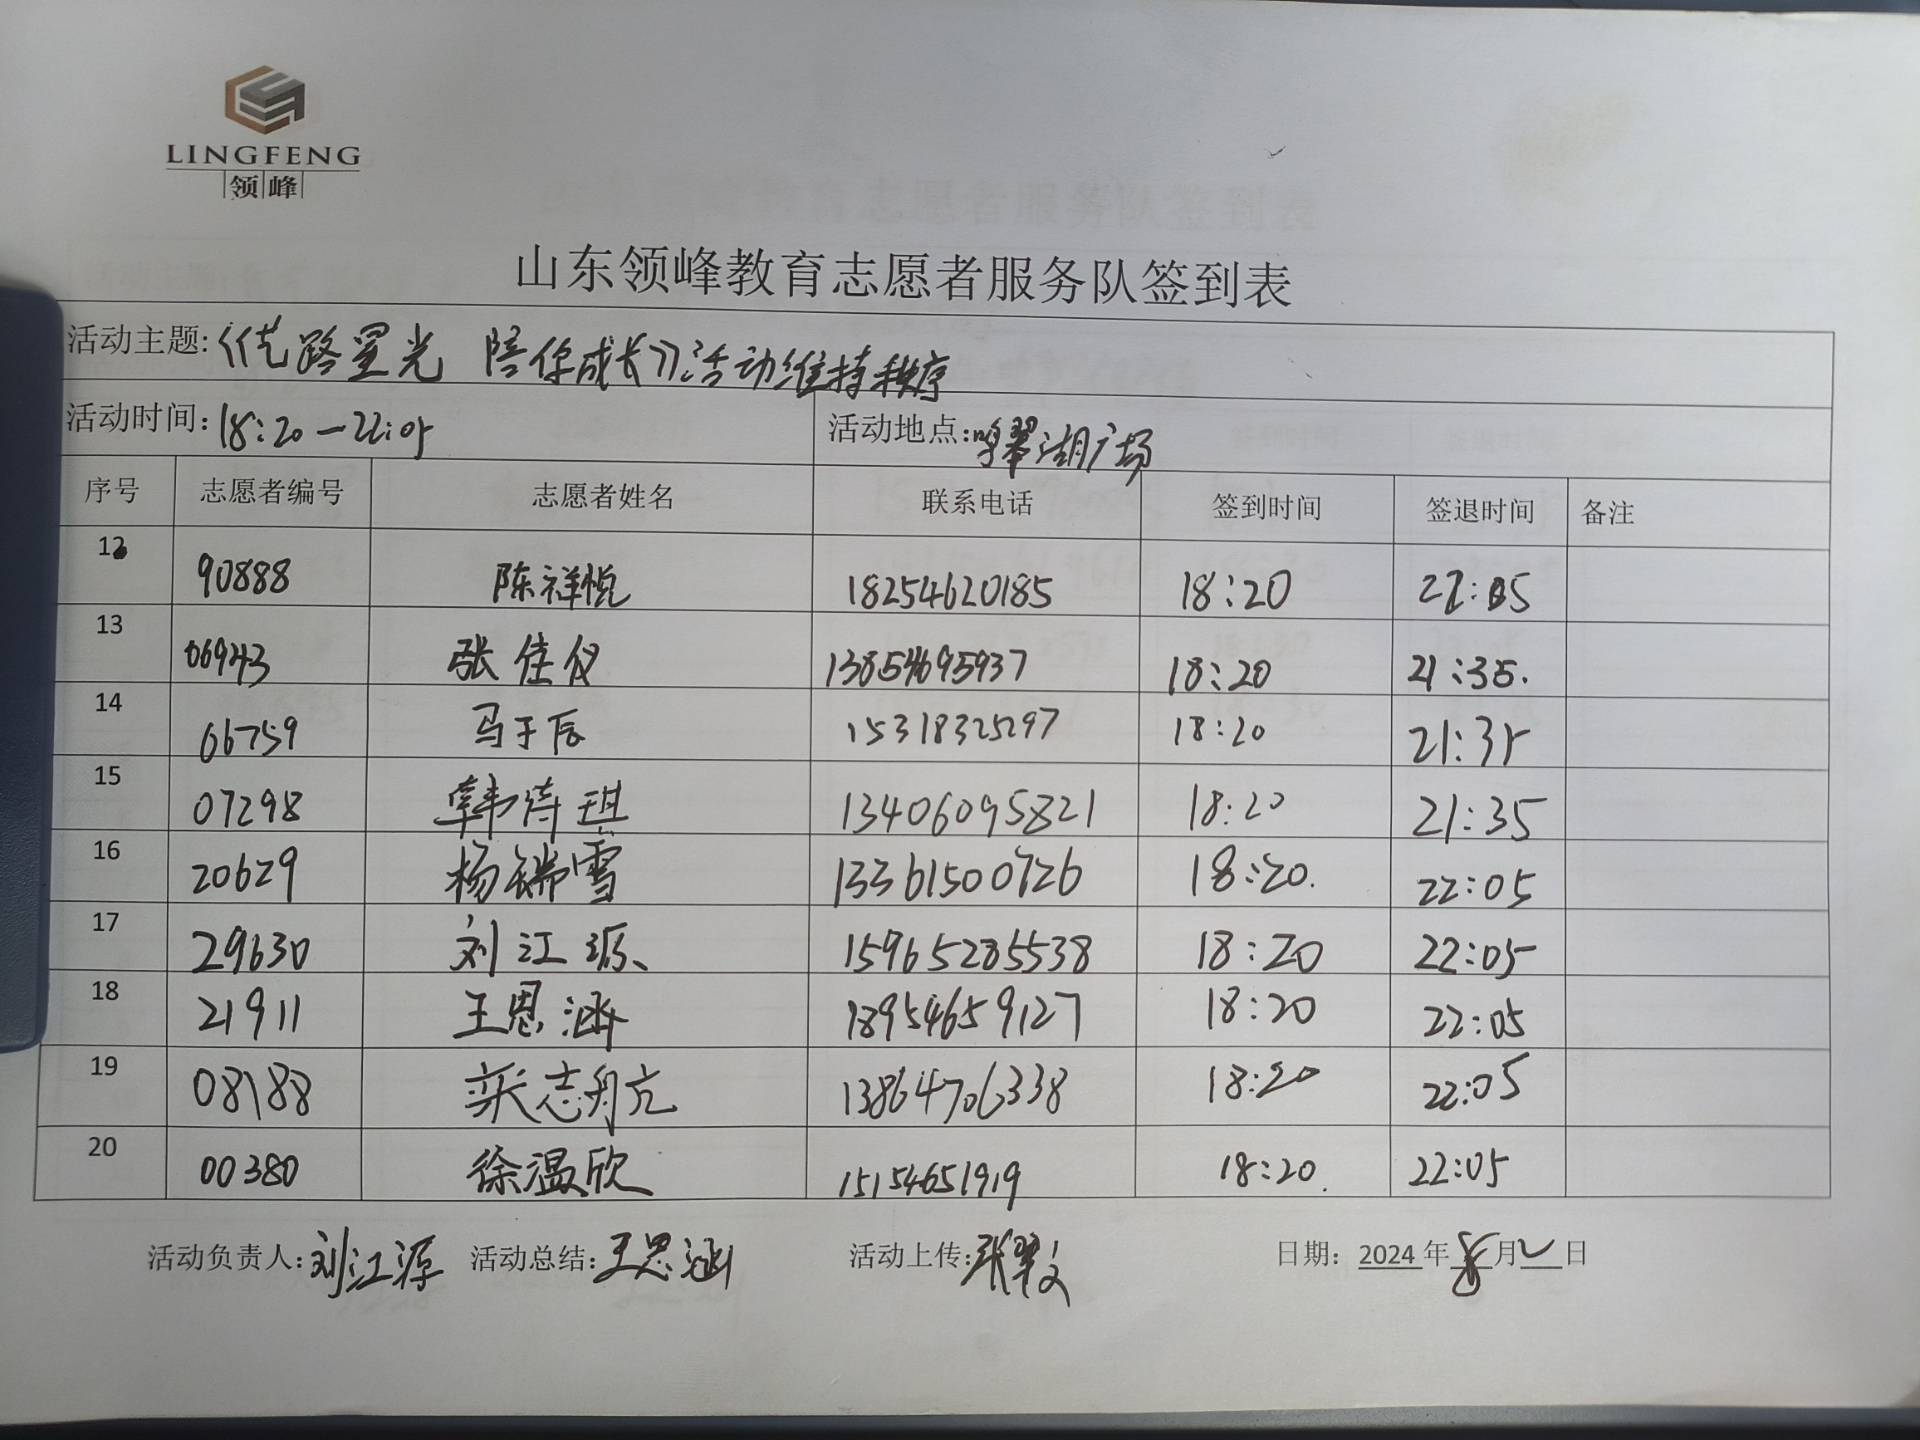 LINGFENG
领峰
山东领峰教育志愿者服务队签到表
活动主题:《艺路星光 陪你成长》活动维持秩序
活动时间:18:20—22:05 活动地点:鸣翠湖广场
序号 志愿者编号 志愿者姓名 联系电话 签到时间 签退时间 备注
12 90888 陈祥悦 18254620185 18:20 22:05
13 06943 张佳仪 13854695937 18:20 21:35.
14 66759 马于辰 15318325297 18:20 21:35
15 07298 韩诗琪 13406095821 18:20 21:35
16 20629 杨瑞雪 13361500726 18:20. 22:05
17 29630 刘江源 15965285538 18:20 22:05
18 21911 王恩涵 18954659127 18:20 22:05
19 08188 志舟 13864706338 18:20 22:05
20 00380 徐温欣 15154651919 18:20. 22:05
活动负责人:刘江源 活动总结:王恩涵 活动上传:张翠文 日期: 2024 年 8 月 2 日